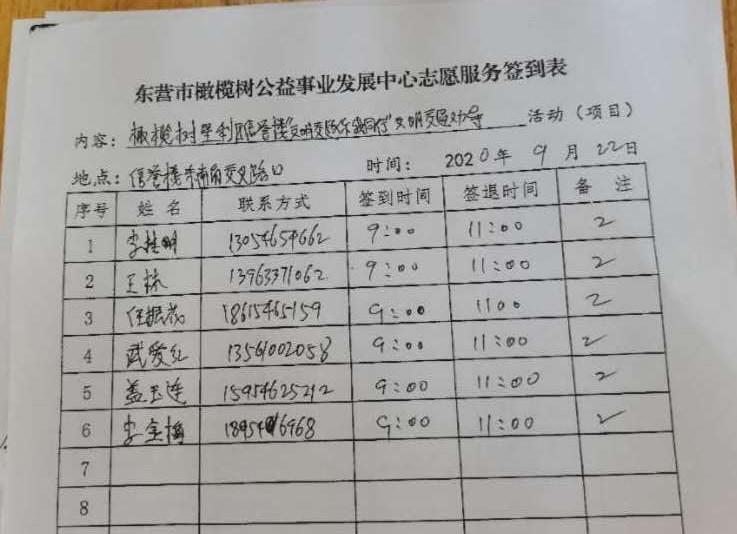 东营市橄榄树公益事业发展中心志愿服务签到表
内容：橄榄树垦利区信誉楼"文明交通你我同行"文明交通劝导 活动（项目）
地点：信誉楼东南角交叉路口 时间：2020年9月22日
序号 姓名 联系方式 签到时间 签退时间 备注
1 李桂明 13054654662 9:00 11:00 2
2 王栋 13963371062 9:00 11:00 2
3 任振花 18615465159 9:00 1100 2
4 武爱红 13561002058 9:00 11:00 2
5 盖玉连 15954625212 9:00 11:00 2
6 李金梅 9:00 11:00 2
7
8